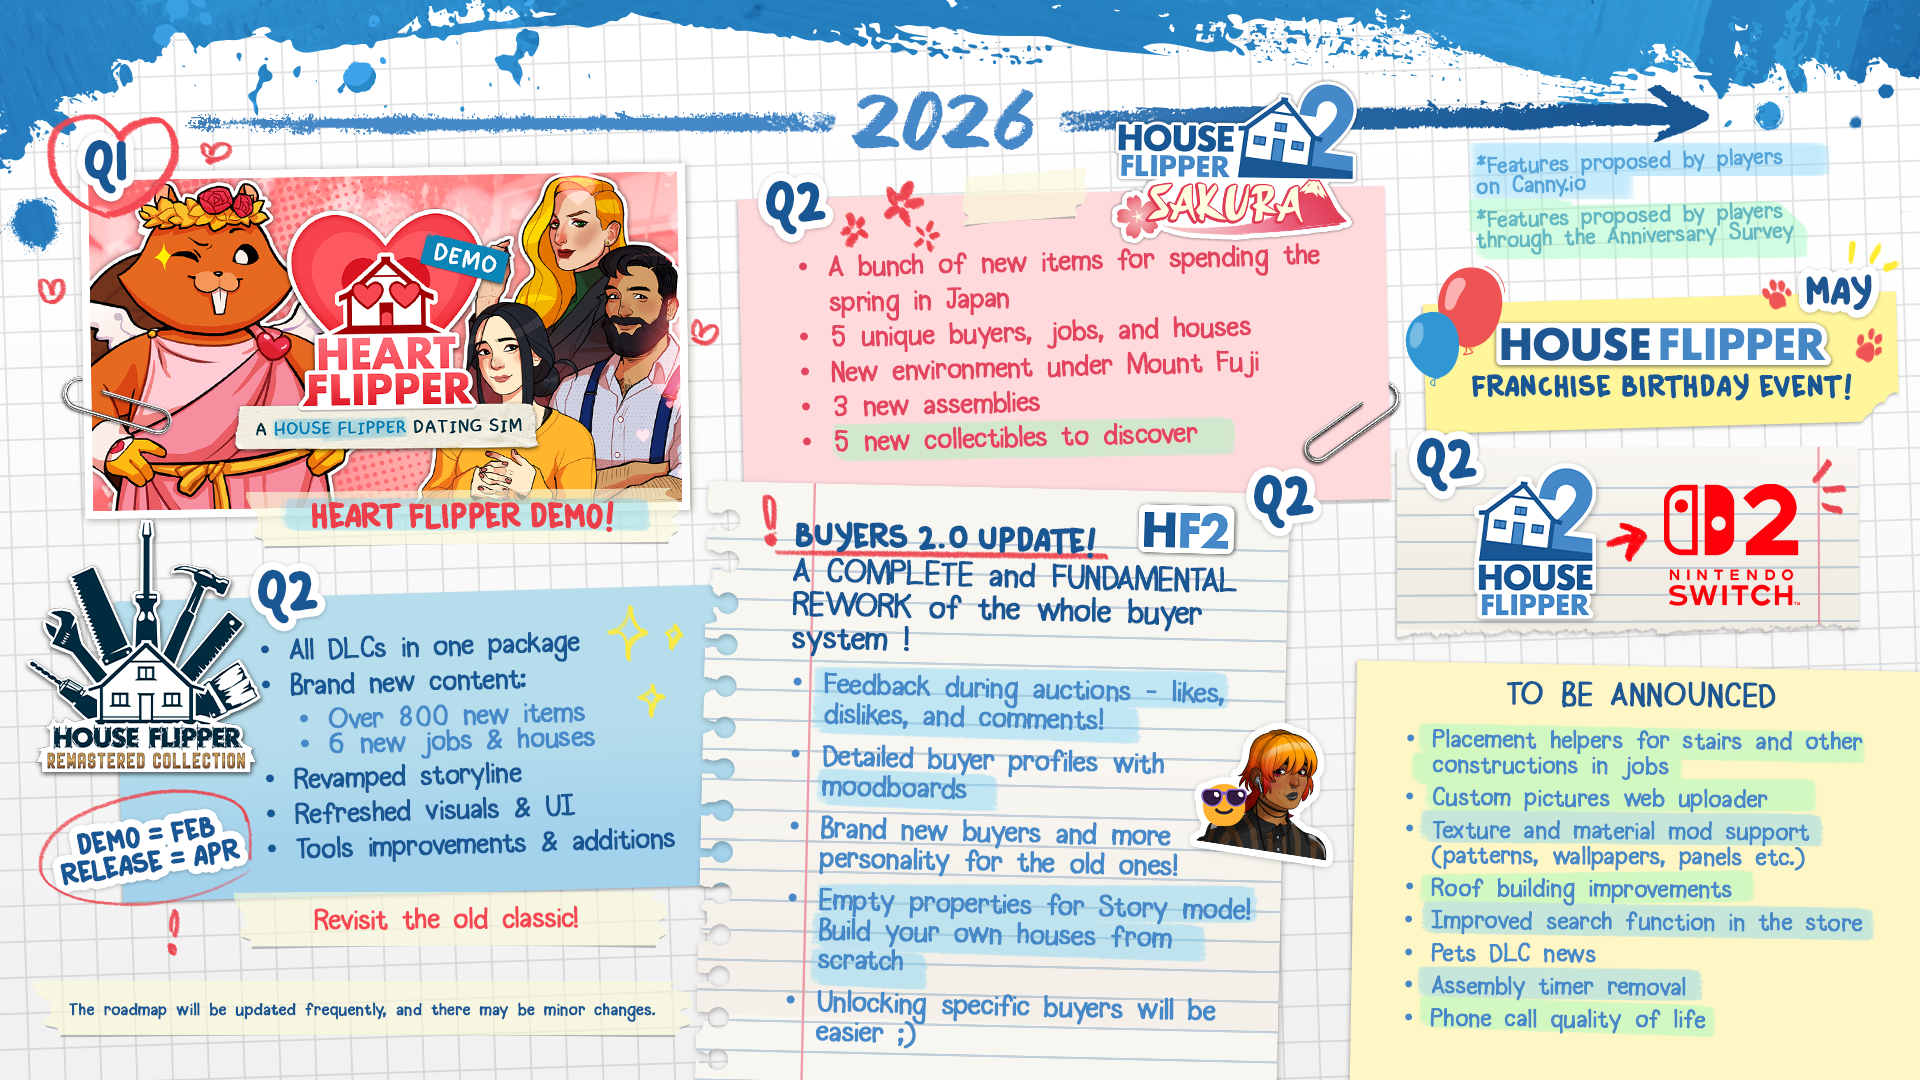 2026
Q1
DEMO
HEART
FLIPPER
A HOUSE FLIPPER DATING SIM
HEART FLIPPER DEMO!
Q2
HOUSE FLIPPER
REMASTERED COLLECTION
• All DLCs in one package
• Brand new content:
• Over 800 new items
• 6 new jobs & houses
• Revamped storyline
• Refreshed visuals & UI
• Tools improvements & additions
DEMO = FEB
RELEASE = APR
Revisit the old classic!
The roadmap will be updated frequently, and there may be minor changes.
Q2
HOUSE 2
FLIPPER
SAKURA
• A bunch of new items for spending the
spring in Japan
• 5 unique buyers, jobs, and houses
• New environment under Mount Fuji
• 3 new assemblies
• 5 new collectibles to discover
Q2
HF2
BUYERS 2.0 UPDATE!
A COMPLETE and FUNDAMENTAL
REWORK of the whole buyer
system !
• Feedback during auctions - likes,
dislikes, and comments!
• Detailed buyer profiles with
moodboards
• Brand new buyers and more
personality for the old ones!
• Empty properties for Story mode!
Build your own houses from
scratch
• Unlocking specific buyers will be
easier ;)
*Features proposed by players
on Canny.io
*Features proposed by players
through the Anniversary Survey
MAY
HOUSE FLIPPER
FRANCHISE BIRTHDAY EVENT!
Q2
2
HOUSE
FLIPPER
2
NINTENDO
SWITCH™
TO BE ANNOUNCED
• Placement helpers for stairs and other
constructions in jobs
• Custom pictures web uploader
• Texture and material mod support
(patterns, wallpapers, panels etc.)
• Roof building improvements
• Improved search function in the store
• Pets DLC news
• Assembly timer removal
• Phone call quality of life